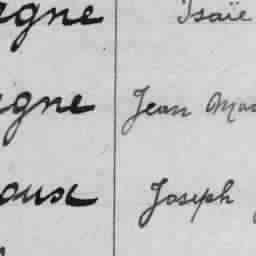 agne Isaïe
agne Jean Ma
oux Joseph